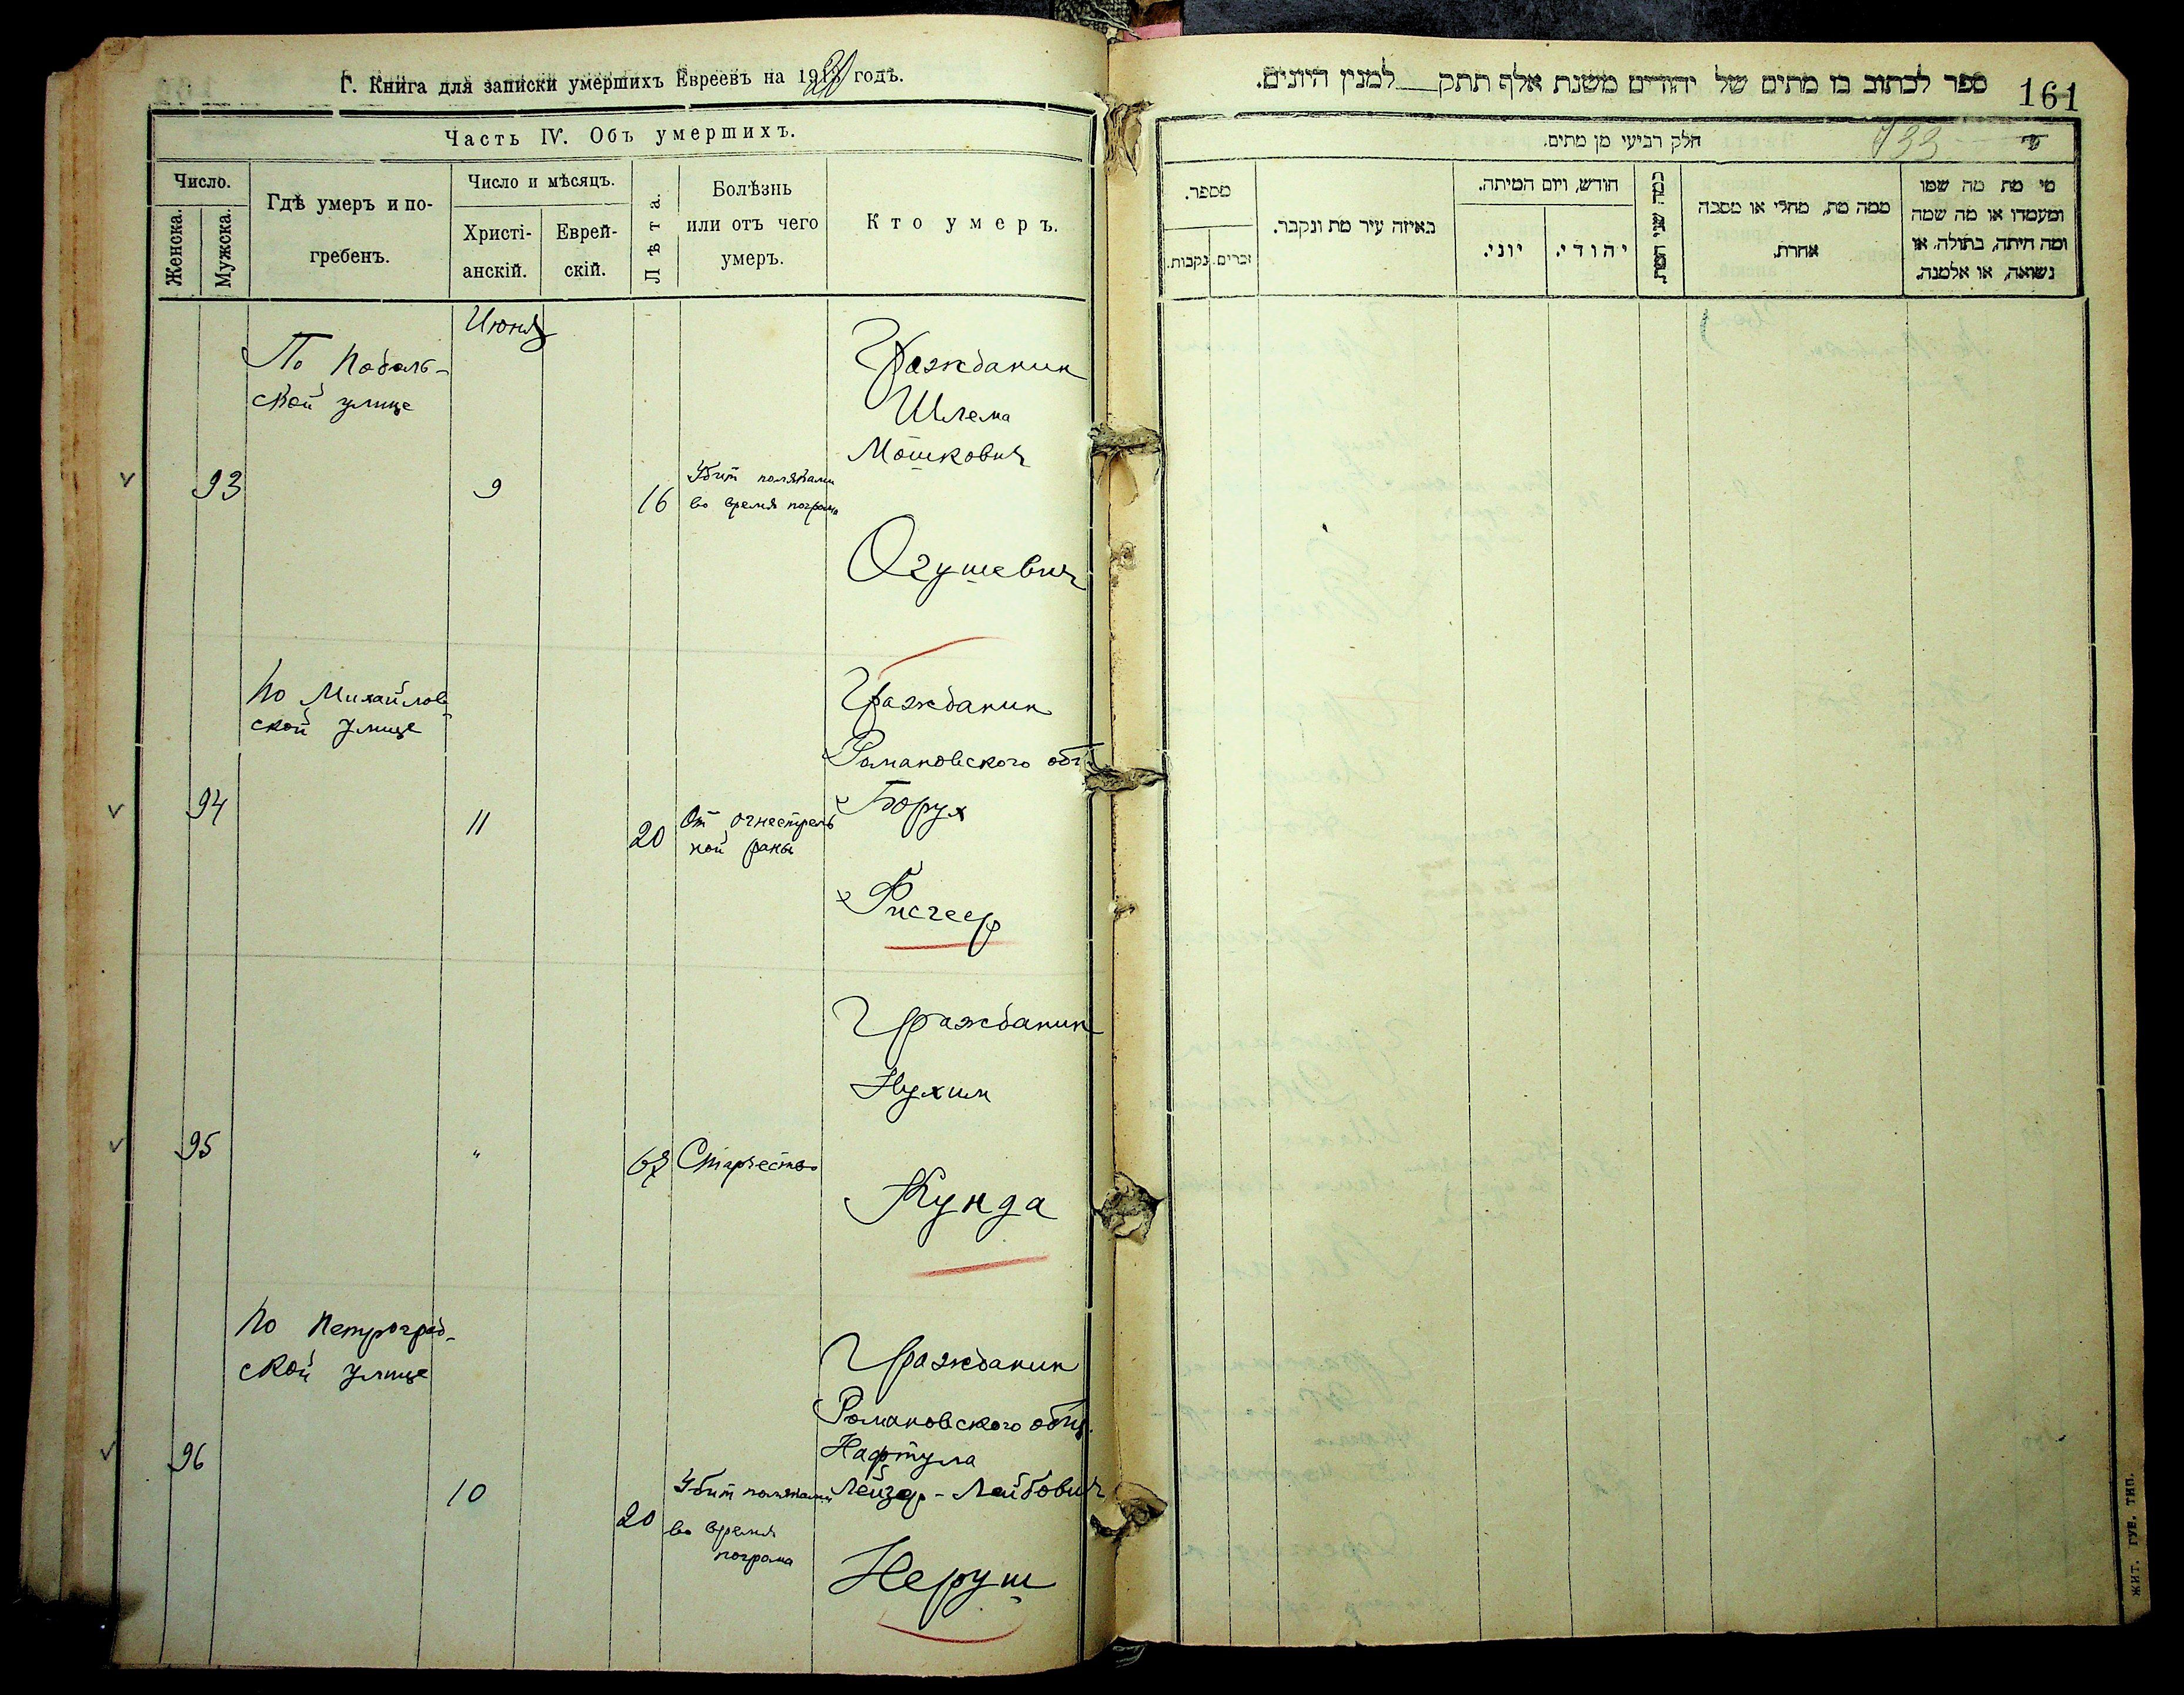 Г. Книга для записки умершихъ Евреевъ на 1920 годъ.
Часть IV. Объ умершихъ.
Число.
Женска.
Мужска.
Гдѣ умеръ и по-
гребенъ.
Число и мѣсяцъ.
Христі-
анскій.
Еврей-
скій.
Лѣта.
Болѣзнь
или отъ чего
умеръ.
Кто умеръ.
Июня
По Подоль-
ской улице
93
9
16
Убит поляками
во время погрома
Гражданин
Шлема
Мошкович
Огушевич
По Михайлов-
ской улице
94
11
20
От огнестрель
ной раны
Гражданин
Романовского общ.
Борух
95
"
Старчество
Гражданин
Нухим
Кунда
По Петроград-
ской улице
96
10
20
Убит поляками
во время
погрома
Гражданин
Романовского общ.
Нафтула
Лейзер-Лейбович
Неруш
ספר לכתוב בו מתים של יהודים משנת אלף תתק למנין היונים.
161
133
חלק רביעי מן מתים.
מספר.
נקבות.
זכרים.
באיזה עיר מת ונקבר.
חודש, ויום המיתה.
יוני.
יהודי.
כמה שני המת.
ממה מת, מחלי או מסבה
אחרת.
מי מת מה שמו
ומעמדו או מה שמה
ומה היתה, בתולה, או
נשואה, או אלמנה.
ЖИТ. ГУБ. ТИП.